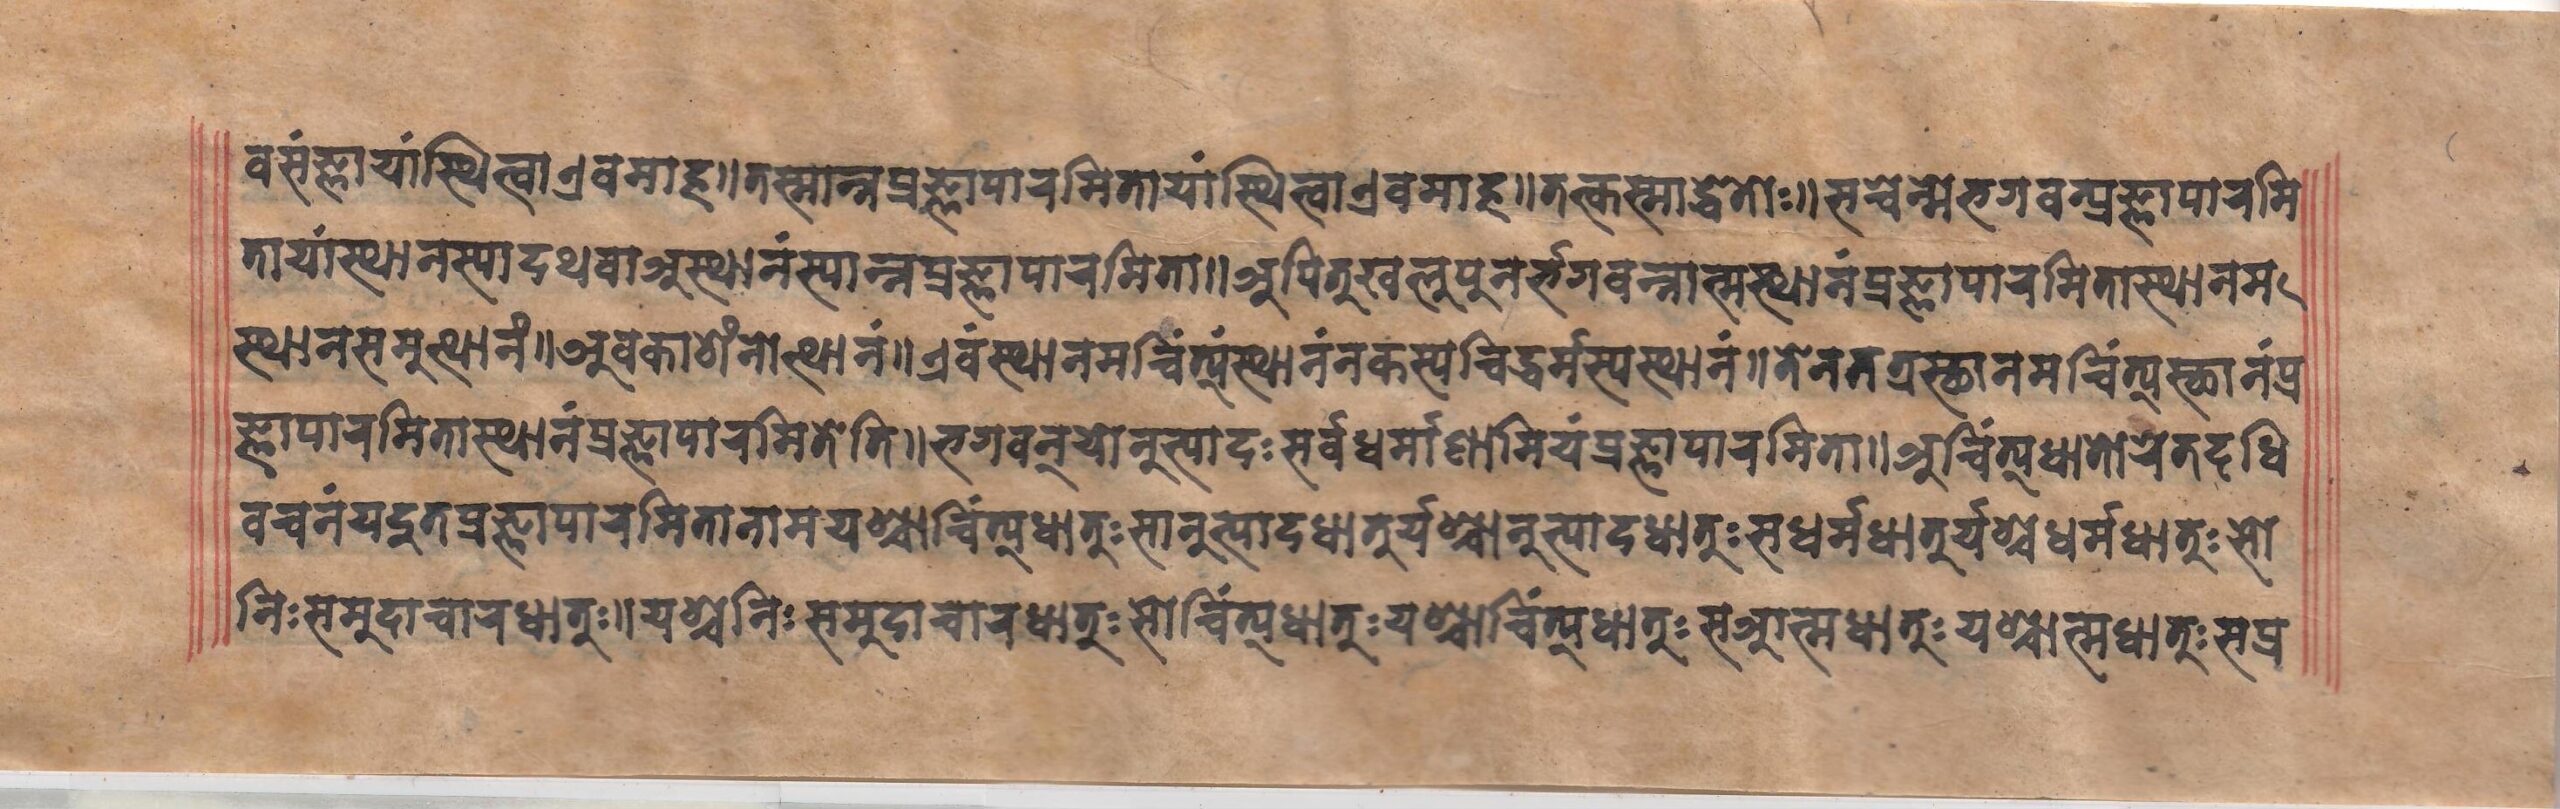 वसंज्ञायांस्थित्वाएवमाह॥तस्मान्नप्रज्ञापारमितायांस्थित्वाएवमाह॥तत्कस्माद्धेतोः॥सचेन्मेभगवन्प्रज्ञापारमि
तायांस्थानस्यादथवाअस्थानंस्यान्नप्रज्ञापारमिता॥अपितुखलुपुनर्भगवन्नात्मस्थानंप्रज्ञापारमितास्थानमऽ
स्थानसमुत्थानं॥अवकाशंनोत्थानं॥एवंस्थानमचिंत्यंस्थानंनकस्यचिद्धर्मस्यस्थानं॥तेनतत्रस्थानमचिंत्यस्थानंप्र
ज्ञापारमितास्थानंप्रज्ञापारमितेति॥भगवन्योनुत्पादःसर्वधर्माणामियंप्रज्ञापारमिता॥अचिंत्यधातोरेतदधि
वचनंयदुतप्रज्ञापारमितानामयश्चाचिंत्यधातुःसानुत्पादधातुर्यश्चानुत्पादधातुःसधर्मधातुर्यश्चधर्मधातुःसो
निःसमुदाचारधातुः॥यश्चनिःसमुदाचारधातुःसोचिंत्यधातुःयश्चाचिंत्यधातुःसआत्मधातुःयश्चात्मधातुःसप्र